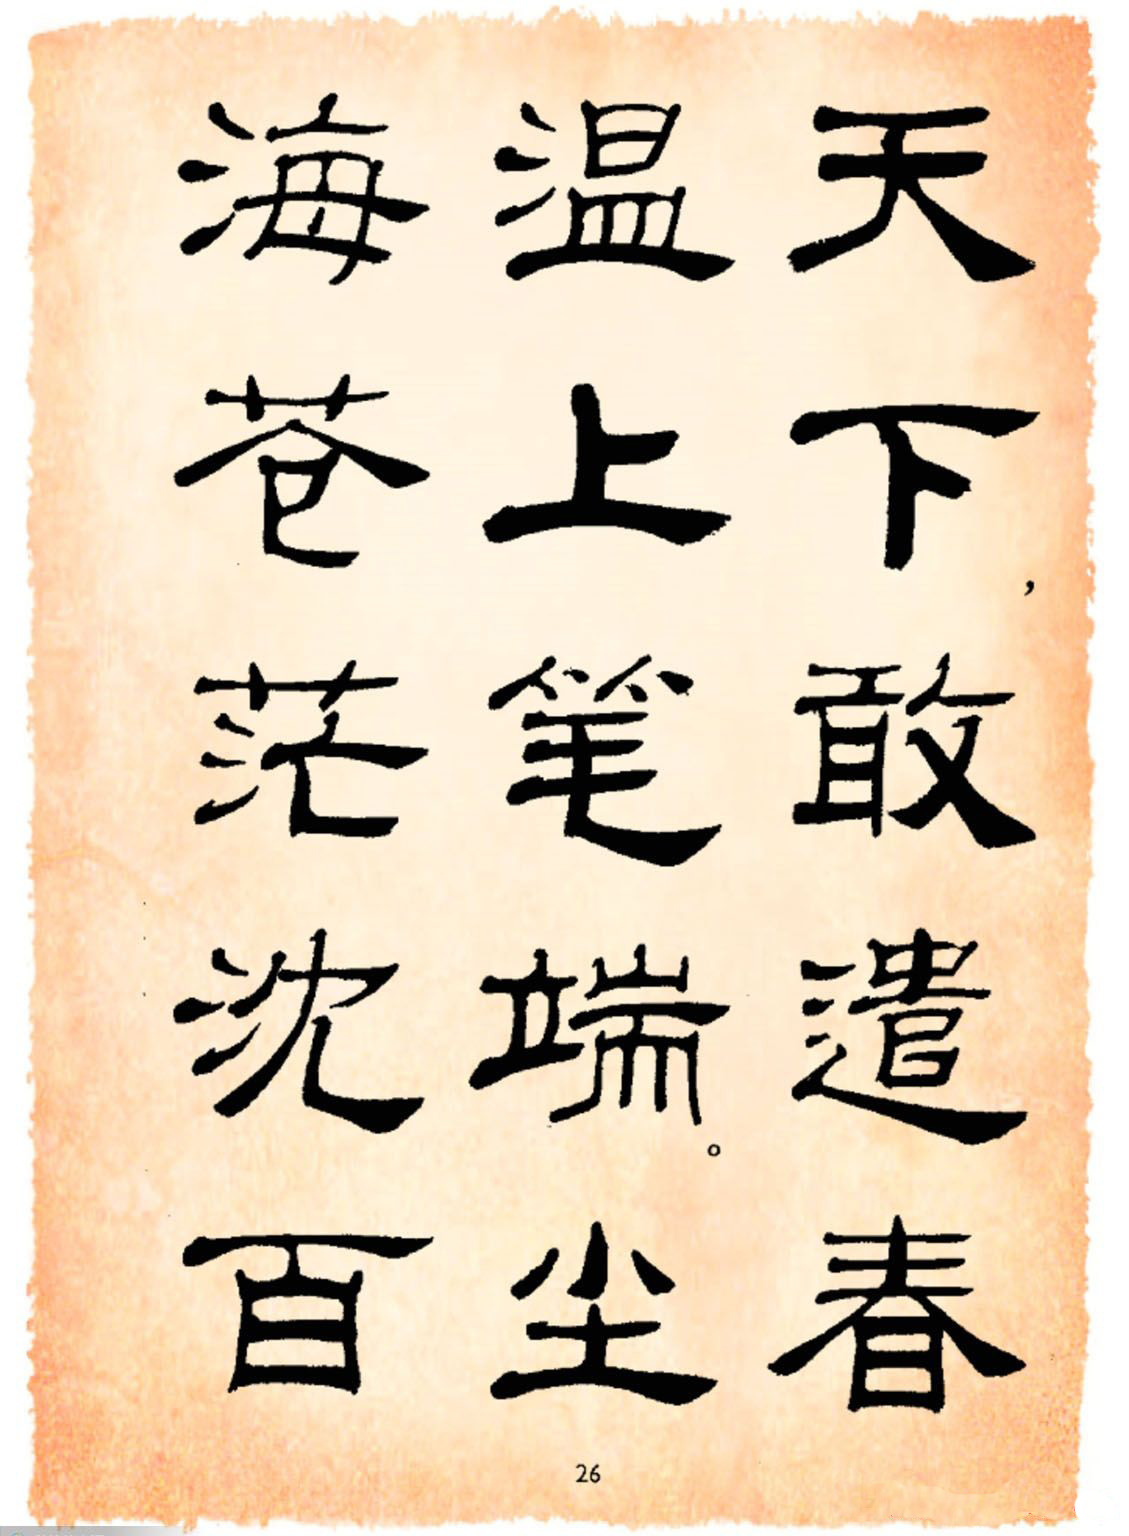 天下，敢遣春
温上笔端。尘
海苍茫沈百
26